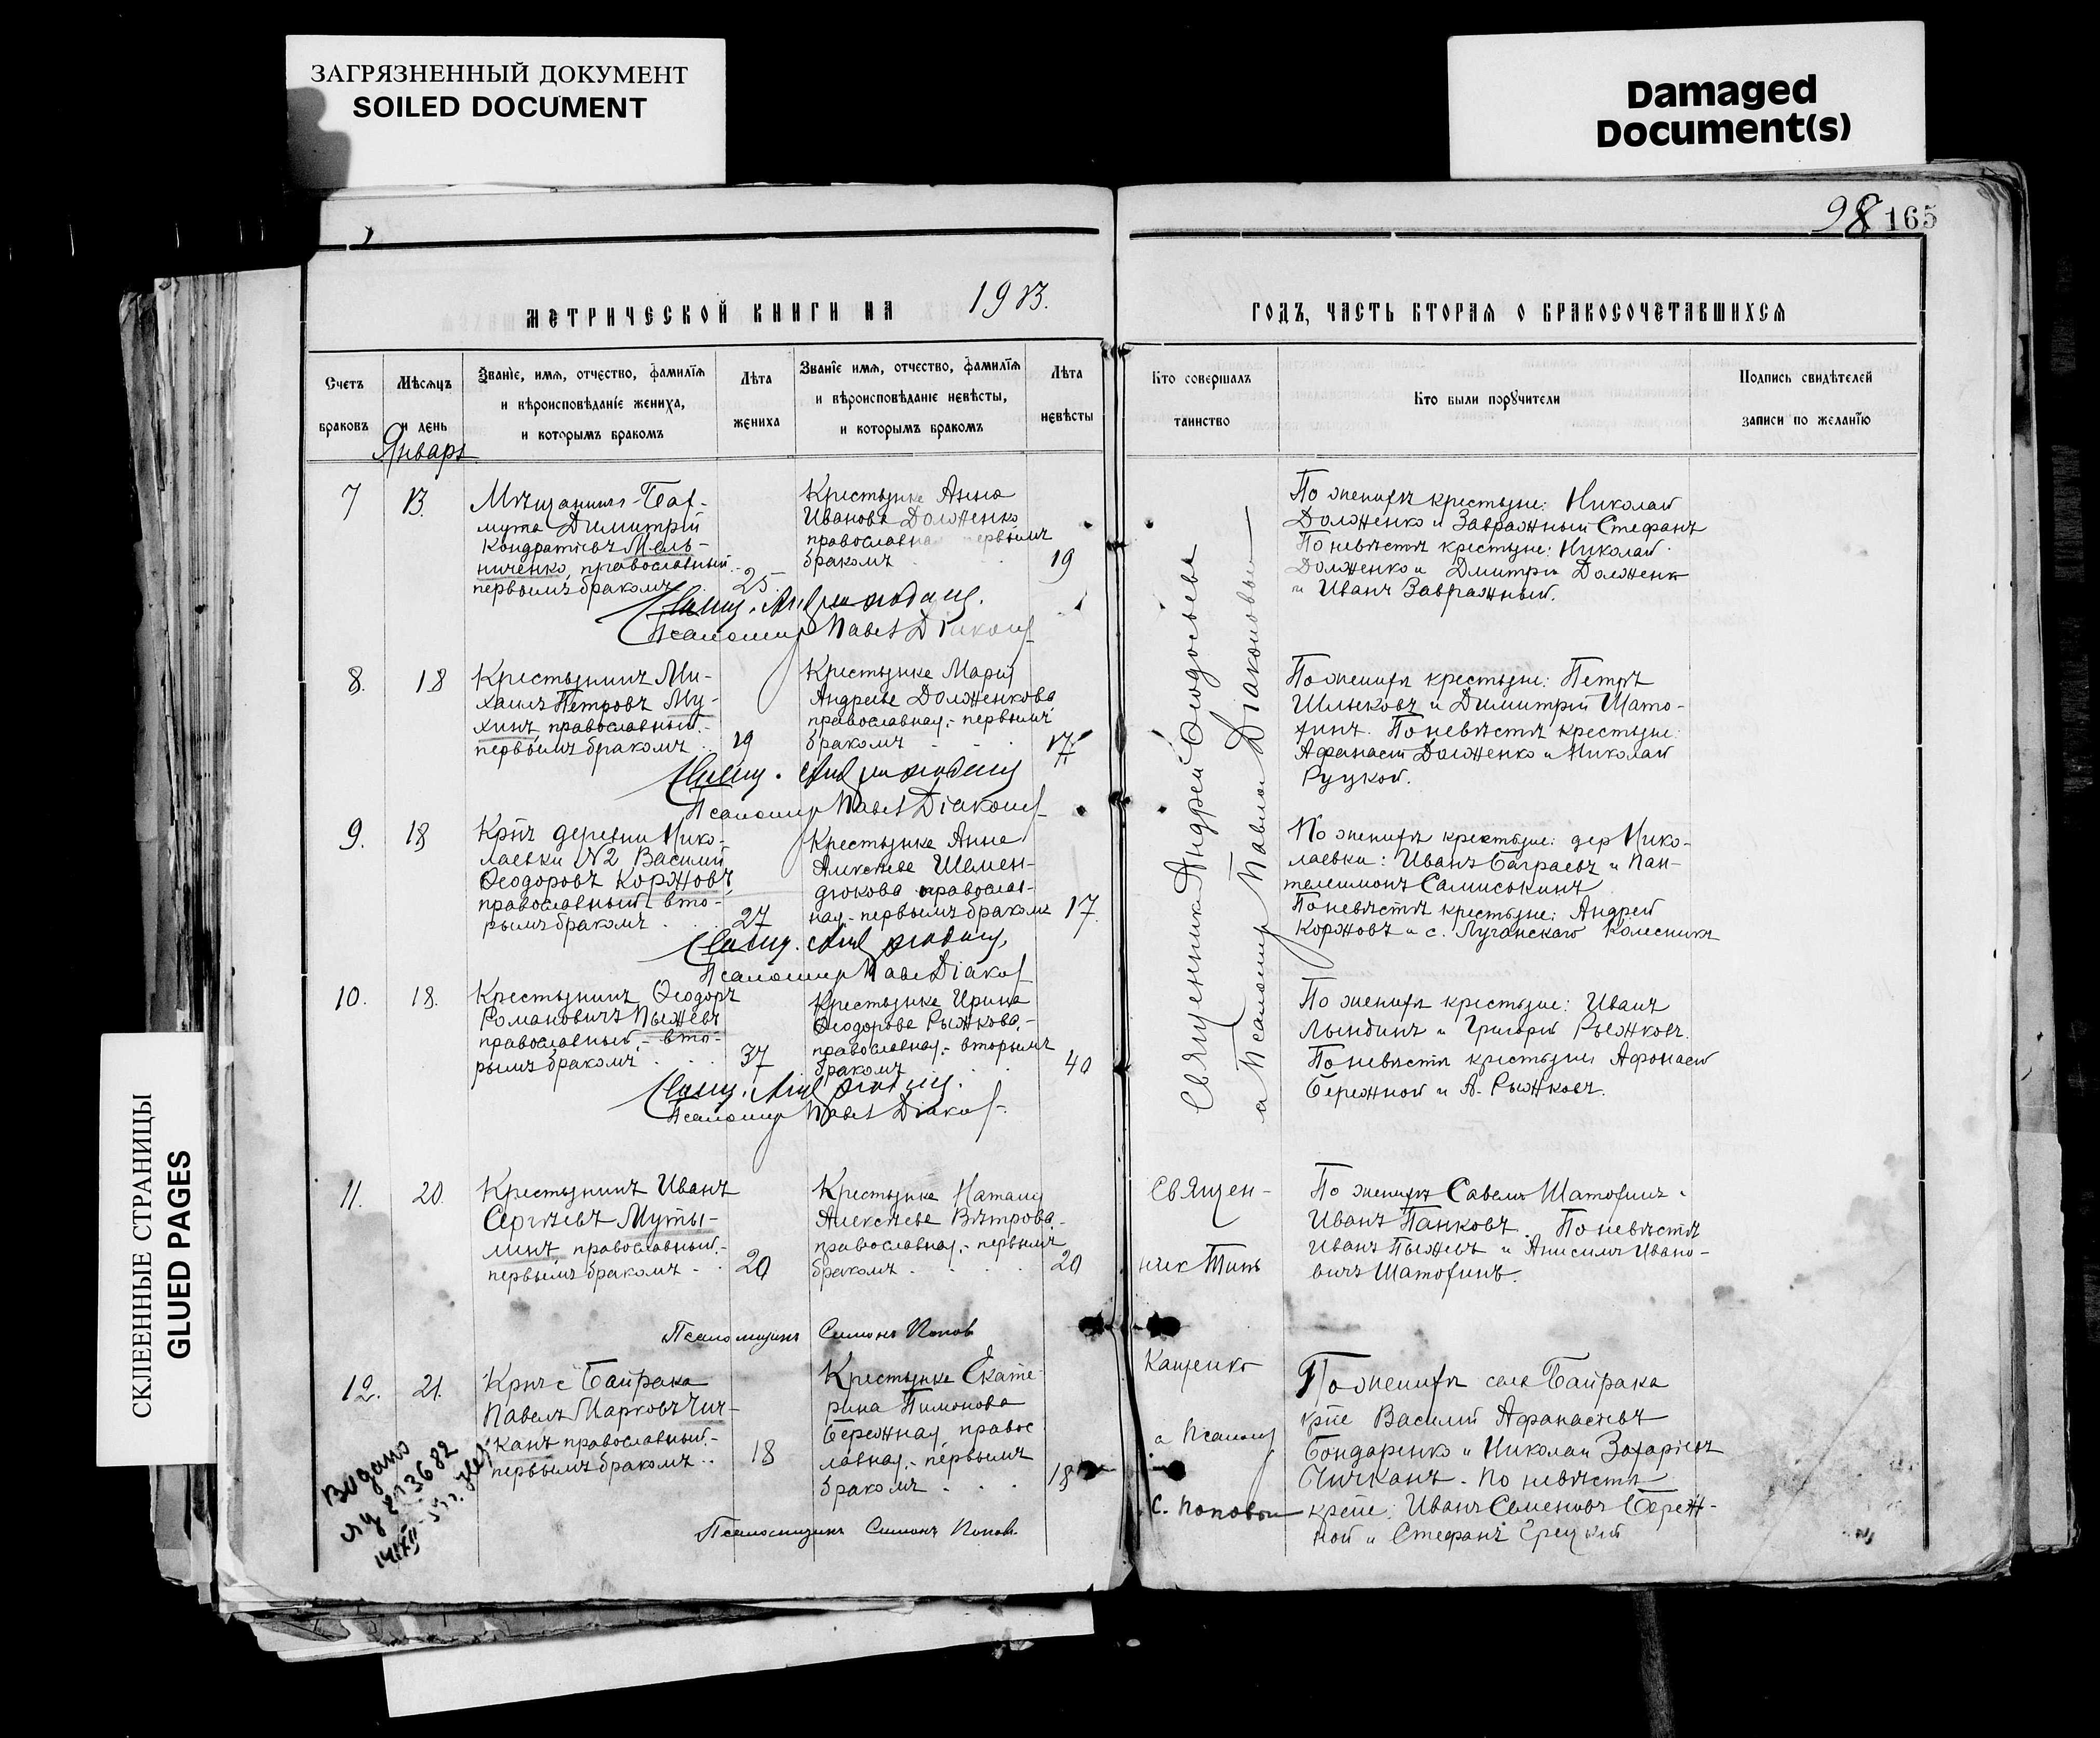 ЗАГРЯЗНЕННЫЙ ДОКУМЕНТ
SOILED DOCUMENT
Damaged
Document(s)
98 165
МЕТРИЧЕСКОЙ КНИГИ НА 1913.
ГОДЪ, ЧАСТЬ ВТОРАЯ О БРАКОСОЧЕТАВШИХСЯ
Счетъ
браковъ
Мѣсяцъ
и день
Январь
Званіе, имя, отчество, фамилія
и вѣроисповѣданіе жениха,
и которымъ бракомъ
Лѣта
жениха
Званіе имя, отчество, фамилія
и вѣроисповѣданіе невѣсты,
и которымъ бракомъ
Лѣта
невѣсты
Кто совершалъ
таинство
Кто были поручители
Подпись свидѣтелей
записи по желанію
7
13.
Мѣщанинъ Бах-
мута Димитрій
Кондратіевъ Мель-
ниченко, православный
первымъ бракомъ
25.
Крестьянка Анна
Иванова Долженко
православная первымъ
бракомъ
19
По женихѣ крестьяне: Николай
Долженко и Завражный Стефанъ
По невѣстѣ крестьяне: Николай
Долженко и Дмитрій Долженк
и Иванъ Завражный.
Псаломщ Павел Діаконов
8.
18
Крестьянинъ Ми-
хаилъ Петровъ Му-
хинъ, православный.-
первымъ бракомъ
19
Крестьянка Марія
Андреева Долженкова
православная,- первымъ
бракомъ
17.
По женихѣ крестьяне: Петръ
Шлыковъ и Димитрій Шато-
хинъ. По невѣстѣ крестьяне:
Афанасій Долженко и Николай
Руцкой.
Псаломщ Павел Діаконов
9.
18
Крнъ деревни Нико-
лаевки N2 Василий
Ѳеодоровъ Коржовъ,
православный вто-
рымъ бракомъ
27
Крестьянка Анна
Алексѣева Шемен-
дюкова православ-
ная- первымъ бракомъ
17.
По женихѣ крестьяне: дер Нико-
лаевки: Иванъ Баграевъ и Пан-
телеимонъ Самиськинъ
По невѣстѣ крестьяне: Андрей
Коржовъ и с. Луганскаго Колесникъ
Псаломщ Павел Діаков
10.
18.
Крестьянинъ Ѳеодоръ
Романовичъ Пыжевъ
православный,- вто-
рымъ бракомъ
37
Крестьянка Ирина
Ѳеодорова Рыжкова,-
православная,- вторымъ
бракомъ
40
По женихѣ крестьяне: Иванъ
Лындинъ и Григорій Рыжковъ.
По невѣстѣ крестьяне Афонасій
Бережной и А. Рыжковъ.
Псаломщ Павел Діаков
Священникъ Андрей Ѳиодосьевъ
а Псаломщ Павелъ Діаконовъ
11.
20.
Крестьянинъ Иванъ
Сергѣевъ Муты-
линъ православный.-
первымъ бракомъ
20
Крестьянка Наталія
Алексѣева Вѣтрова.
православная,- первымъ
бракомъ
20
Священ-
никъ Тит
По женихѣ Савелъ Шатохинъ
Иванъ Панковъ. По невѣстѣ
Иванъ Пыжевъ и Анисимъ Ивано-
вичъ Шатохинъ.
Псаломщикъ Симонъ Попов
12.
21.
Крнъ с Байрака
Павелъ Марковъ Чич-
канъ православный.-
первымъ бракомъ
18
Крестьянка Екате-
рина Пимонова
Бережная, правос
лавная,- первымъ
бракомъ
18
Кащенко
а Псаломщ
С. Поповъ
По женихѣ села Байрака
крпе Василий Афанасіевъ
Бондаренко и Николай Захаріевъ
Чичканъ. По невѣстѣ
крпе: Иванъ Семеновъ Береж-
ной и Стефанъ Ерецкий
Псаломщикъ Симонъ Попов.
Видано
СКЛЕЕННЫЕ СТРАНИЦЫ
GLUED PAGES